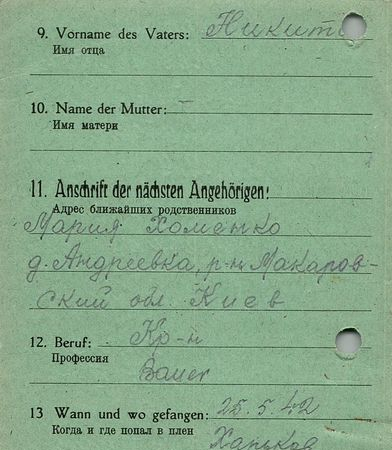 9. Vorname des Vaters: Никита
Имя отца
10. Name der Mutter: —
Имя матери
11. Anschrift der nächsten Angehörigen:
Адрес ближайших родственников
Мария Хоменко
д. Андреевка, р-н Макаров-
ский обл. Киев
12. Beruf: Кр-н
Профессия
Bauer
13 Wann und wo gefangen: 25.5.42
Когда и где попал в плен
Харьков